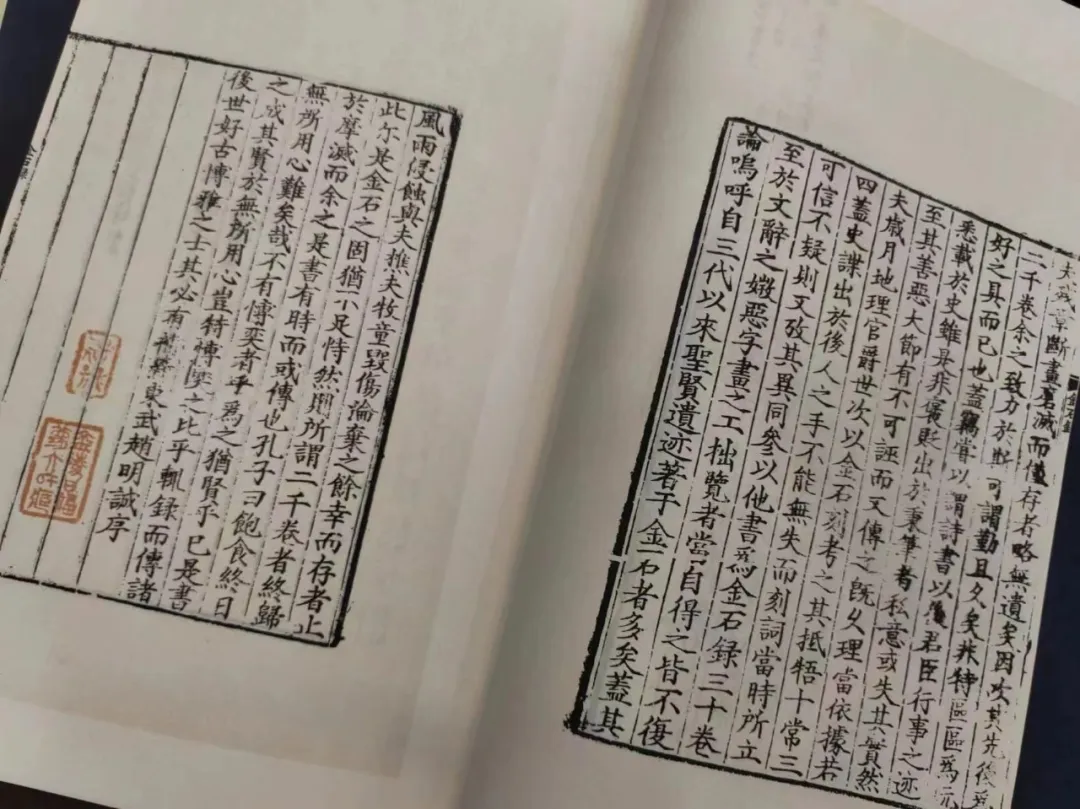 夫殘章斷畫磨滅而僅存者略無遺矣因次其先後爲
二千卷余之致力於斯可謂勤且久矣非特區區爲玩
好之具而已也蓋竊嘗以謂詩書以後君臣行事之迹
悉載於史雖是非褒貶出於秉筆者私意或失其實然
至其善惡大節有不可誣而又傳之既久理當依據若
夫歲月地理官爵世次以金石刻考之其抵牾十常三
四蓋史諜出於後人之手不能無失而刻詞當時所立
可信不疑則又攷其異同參以他書爲金石録三十卷
至於文辭之媺惡字畫之工拙覽者當自得之皆不復
論嗚呼自三代以來聖賢遺迹著于金石者多矣蓋其
風雨侵蝕與夫樵夫牧童毀傷淪棄之餘幸而存者止
此尔是金石之固猶不足恃然則所謂二千卷者終歸
於摩滅而余之是書有時而或傳也孔子曰飽食終日
無所用心難矣哉不有博奕者乎爲之猶賢乎已是書
之成其賢於無所用心豈特博奕之比乎輒録而傳諸
後世好古博雅之士其必有補焉東武趙明誠序